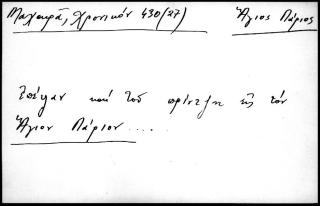 Μαχαιρᾶ, Χρονικόν 430 (27) Ἅγιος Πάριος
Ἐπέψαν καὶ τοῦ πρίντζη εἰς τὸν
Ἅγιον Πάριον ....